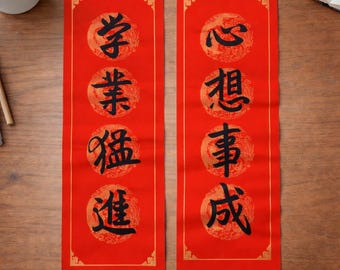 心想事成
学業猛進